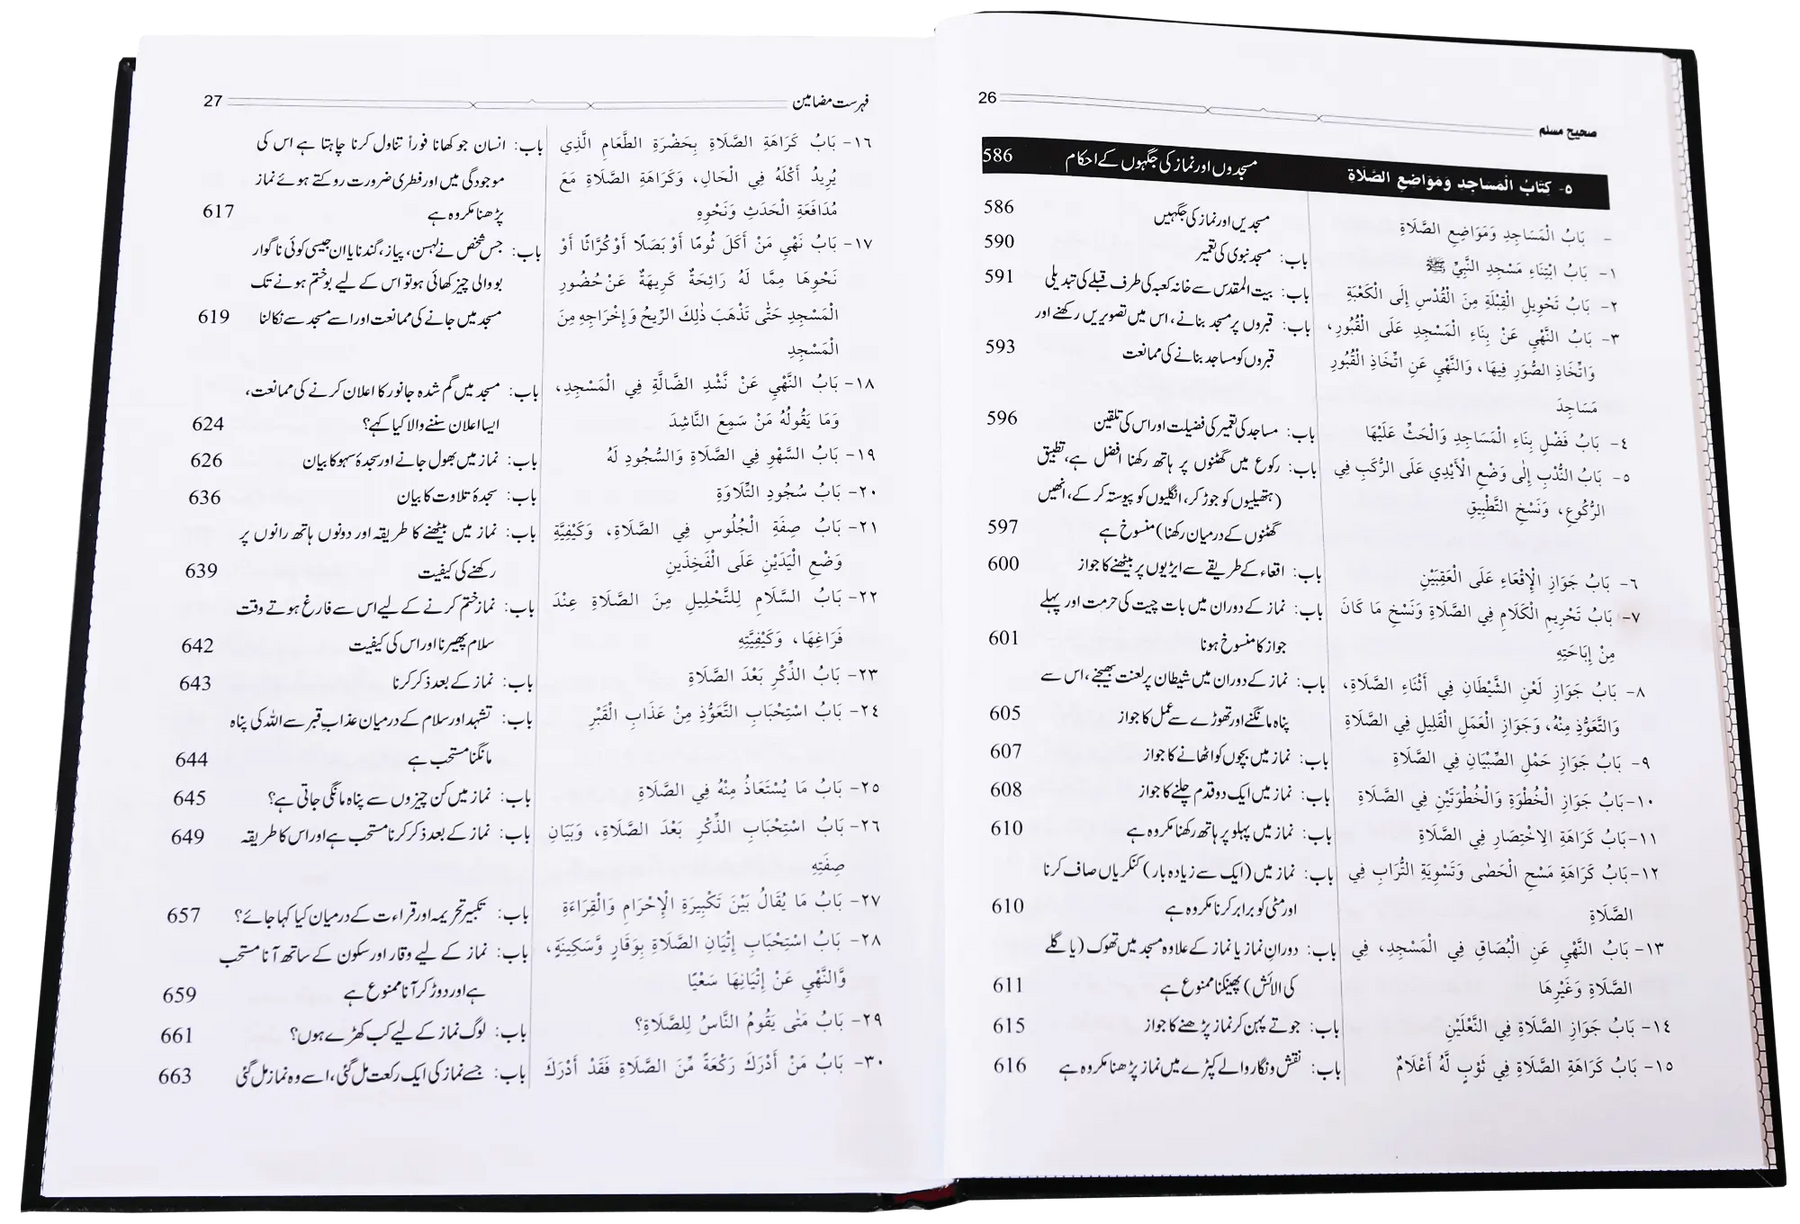 26
صحیح مسلم
٥- كِتَابُ الْمَسَاجِدِ وَمَوَاضِعِ الصَّلَاةِ مسجدوں اور نماز کی جگہوں کے احکام 586
- بَابُ الْمَسَاجِدِ وَمَوَاضِعِ الصَّلَاةِ مسجدیں اور نماز کی جگہیں 586
١- بَابُ ابْتِنَاءِ مَسْجِدِ النَّبِيِّ ﷺ باب: مسجد نبوی کی تعمیر 590
٢- بَابُ تَحْوِيلِ الْقِبْلَةِ مِنَ الْقُدْسِ إِلَى الْكَعْبَةِ باب: بیت المقدس سے خانہ کعبہ کی طرف قبلے کی تبدیلی 591
٣- بَابُ النَّهْيِ عَنْ بِنَاءِ الْمَسْجِدِ عَلَى الْقُبُورِ، باب: قبروں پر مسجد بنانے، اس میں تصویریں رکھنے اور
وَاتِّخَاذِ الصُّوَرِ فِيهَا، وَالنَّهْيِ عَنِ اتِّخَاذِ الْقُبُورِ قبروں کو مساجد بنانے کی ممانعت 593
مَسَاجِدَ
٤- بَابُ فَضْلِ بِنَاءِ الْمَسَاجِدِ وَالْحَثِّ عَلَيْهَا باب: مساجد کی تعمیر کی فضیلت اور اس کی تلقین 596
٥- بَابُ النَّدْبِ إِلَى وَضْعِ الْأَيْدِي عَلَى الرُّكَبِ فِي باب: رکوع میں گھٹنوں پر ہاتھ رکھنا افضل ہے، تطبیق
الرُّكُوعِ، وَنَسْخِ التَّطْبِيقِ (ہتھیلیوں کو جوڑ کر، انگلیوں کو پیوستہ کر کے، انھیں
گھٹنوں کے درمیان رکھنا) منسوخ ہے 597
٦- بَابُ جَوَازِ الْإِقْعَاءِ عَلَى الْعَقِبَيْنِ باب: اقعاء کے طریقے سے ایڑیوں پر بیٹھنے کا جواز 600
٧- بَابُ تَحْرِيمِ الْكَلَامِ فِي الصَّلَاةِ وَنَسْخِ مَا كَانَ باب: نماز کے دوران میں بات چیت کی حرمت اور پہلے
مِنْ إِبَاحَتِهِ جواز کا منسوخ ہونا 601
٨- بَابُ جَوَازِ لَعْنِ الشَّيْطَانِ فِي أَثْنَاءِ الصَّلَاةِ، باب: نماز کے دوران میں شیطان پر لعنت بھیجنے، اس سے
وَالتَّعَوُّذِ مِنْهُ، وَجَوَازِ الْعَمَلِ الْقَلِيلِ فِي الصَّلَاةِ پناہ مانگنے اور تھوڑے سے عمل کا جواز 605
٩- بَابُ جَوَازِ حَمْلِ الصِّبْيَانِ فِي الصَّلَاةِ باب: نماز میں بچوں کو اٹھانے کا جواز 607
١٠- بَابُ جَوَازِ الْخُطْوَةِ وَالْخُطْوَتَيْنِ فِي الصَّلَاةِ باب: نماز میں ایک دو قدم چلنے کا جواز 608
١١- بَابُ كَرَاهَةِ الِاخْتِصَارِ فِي الصَّلَاةِ باب: نماز میں پہلو پر ہاتھ رکھنا مکروہ ہے 610
١٢- بَابُ كَرَاهَةِ مَسْحِ الْحَصٰى وَتَسْوِيَةِ التُّرَابِ فِي باب: نماز میں (ایک سے زیادہ بار) کنکریاں صاف کرنا
الصَّلَاةِ اور مٹی کو برابر کرنا مکروہ ہے 610
١٣- بَابُ النَّهْيِ عَنِ الْبُصَاقِ فِي الْمَسْجِدِ، فِي باب: دورانِ نماز یا نماز کے علاوہ مسجد میں تھوک (یا گلے
الصَّلَاةِ وَغَيْرِهَا کی الائش) پھینکنا ممنوع ہے 611
١٤- بَابُ جَوَازِ الصَّلَاةِ فِي النَّعْلَيْنِ باب: جوتے پہن کر نماز پڑھنے کا جواز 615
١٥- بَابُ كَرَاهَةِ الصَّلَاةِ فِي ثَوْبٍ لَّهُ أَعْلَامٌ باب: نقش و نگار والے کپڑے میں نماز پڑھنا مکروہ ہے 616
فہرست مضامین 27
١٦- بَابُ كَرَاهَةِ الصَّلَاةِ بِحَضْرَةِ الطَّعَامِ الَّذِي باب: انسان جو کھانا فوراً تناول کرنا چاہتا ہے اس کی
يُرِيدُ أَكْلَهُ فِي الْحَالِ، وَكَرَاهَةِ الصَّلَاةِ مَعَ موجودگی میں اور فطری ضرورت روکتے ہوئے نماز
مُدَافَعَةِ الْحَدَثِ وَنَحْوِهِ پڑھنا مکروہ ہے 617
١٧- بَابُ نَهْيِ مَنْ أَكَلَ ثُومًا أَوْ بَصَلًا أَوْ كُرَّاثًا أَوْ باب: جس شخص نے لہسن، پیاز، گندنا یا ان جیسی کوئی ناگوار
نَحْوِهَا مِمَّا لَهُ رَائِحَةٌ كَرِيهَةٌ عَنْ حُضُورِ بو والی چیز کھائی ہو تو اس کے لیے بو ختم ہونے تک
الْمَسْجِدِ حَتّٰى تَذْهَبَ ذٰلِكَ الرِّيحُ وَإِخْرَاجِهِ مِنَ مسجد میں جانے کی ممانعت اور اسے مسجد سے نکالنا 619
الْمَسْجِدِ
١٨- بَابُ النَّهْيِ عَنْ نَّشْدِ الضَّالَّةِ فِي الْمَسْجِدِ، باب: مسجد میں گم شدہ جانور کا اعلان کرنے کی ممانعت،
وَمَا يَقُولُهُ مَنْ سَمِعَ النَّاشِدَ ایسا اعلان سننے والا کیا کہے؟ 624
١٩- بَابُ السَّهْوِ فِي الصَّلَاةِ وَالسُّجُودِ لَهُ باب: نماز میں بھول جانے اور سجدۂ سہو کا بیان 626
٢٠- بَابُ سُجُودِ التِّلَاوَةِ باب: سجدۂ تلاوت کا بیان 636
٢١- بَابُ صِفَةِ الْجُلُوسِ فِي الصَّلَاةِ، وَكَيْفِيَّةِ باب: نماز میں بیٹھنے کا طریقہ اور دونوں ہاتھ رانوں پر
وَضْعِ الْيَدَيْنِ عَلَى الْفَخِذَيْنِ رکھنے کی کیفیت 639
٢٢- بَابُ السَّلَامِ لِلتَّحْلِيلِ مِنَ الصَّلَاةِ عِنْدَ باب: نماز ختم کرنے کے لیے اس سے فارغ ہوتے وقت
فَرَاغِهَا، وَكَيْفِيَّتِهِ سلام پھیرنا اور اس کی کیفیت 642
٢٣- بَابُ الذِّكْرِ بَعْدَ الصَّلَاةِ باب: نماز کے بعد ذکر کرنا 643
٢٤- بَابُ اسْتِحْبَابِ التَّعَوُّذِ مِنْ عَذَابِ الْقَبْرِ باب: تشہد اور سلام کے درمیان عذابِ قبر سے اللہ کی پناہ
مانگنا مستحب ہے 644
٢٥- بَابُ مَا يُسْتَعَاذُ مِنْهُ فِي الصَّلَاةِ باب: نماز میں کن چیزوں سے پناہ مانگی جاتی ہے؟ 645
٢٦- بَابُ اسْتِحْبَابِ الذِّكْرِ بَعْدَ الصَّلَاةِ، وَبَيَانِ باب: نماز کے بعد ذکر کرنا مستحب ہے اور اس کا طریقہ 649
صِفَتِهِ
٢٧- بَابُ مَا يُقَالُ بَيْنَ تَكْبِيرَةِ الْإِحْرَامِ وَالْقِرَاءَةِ باب: تکبیر تحریمہ اور قراءت کے درمیان کیا کہا جائے؟ 657
٢٨- بَابُ اسْتِحْبَابِ إِتْيَانِ الصَّلَاةِ بِوَقَارٍ وَّسَكِينَةٍ، باب: نماز کے لیے وقار اور سکون کے ساتھ آنا مستحب
وَّالنَّهْيِ عَنْ إِتْيَانِهَا سَعْيًا ہے اور دوڑ کر آنا ممنوع ہے 659
٢٩- بَابُ مَتٰى يَقُومُ النَّاسُ لِلصَّلَاةِ؟ باب: لوگ نماز کے لیے کب کھڑے ہوں؟ 661
٣٠- بَابُ مَنْ أَدْرَكَ رَكْعَةً مِّنَ الصَّلَاةِ فَقَدْ أَدْرَكَ باب: جسے نماز کی ایک رکعت مل گئی، اسے وہ نماز مل گئی 663